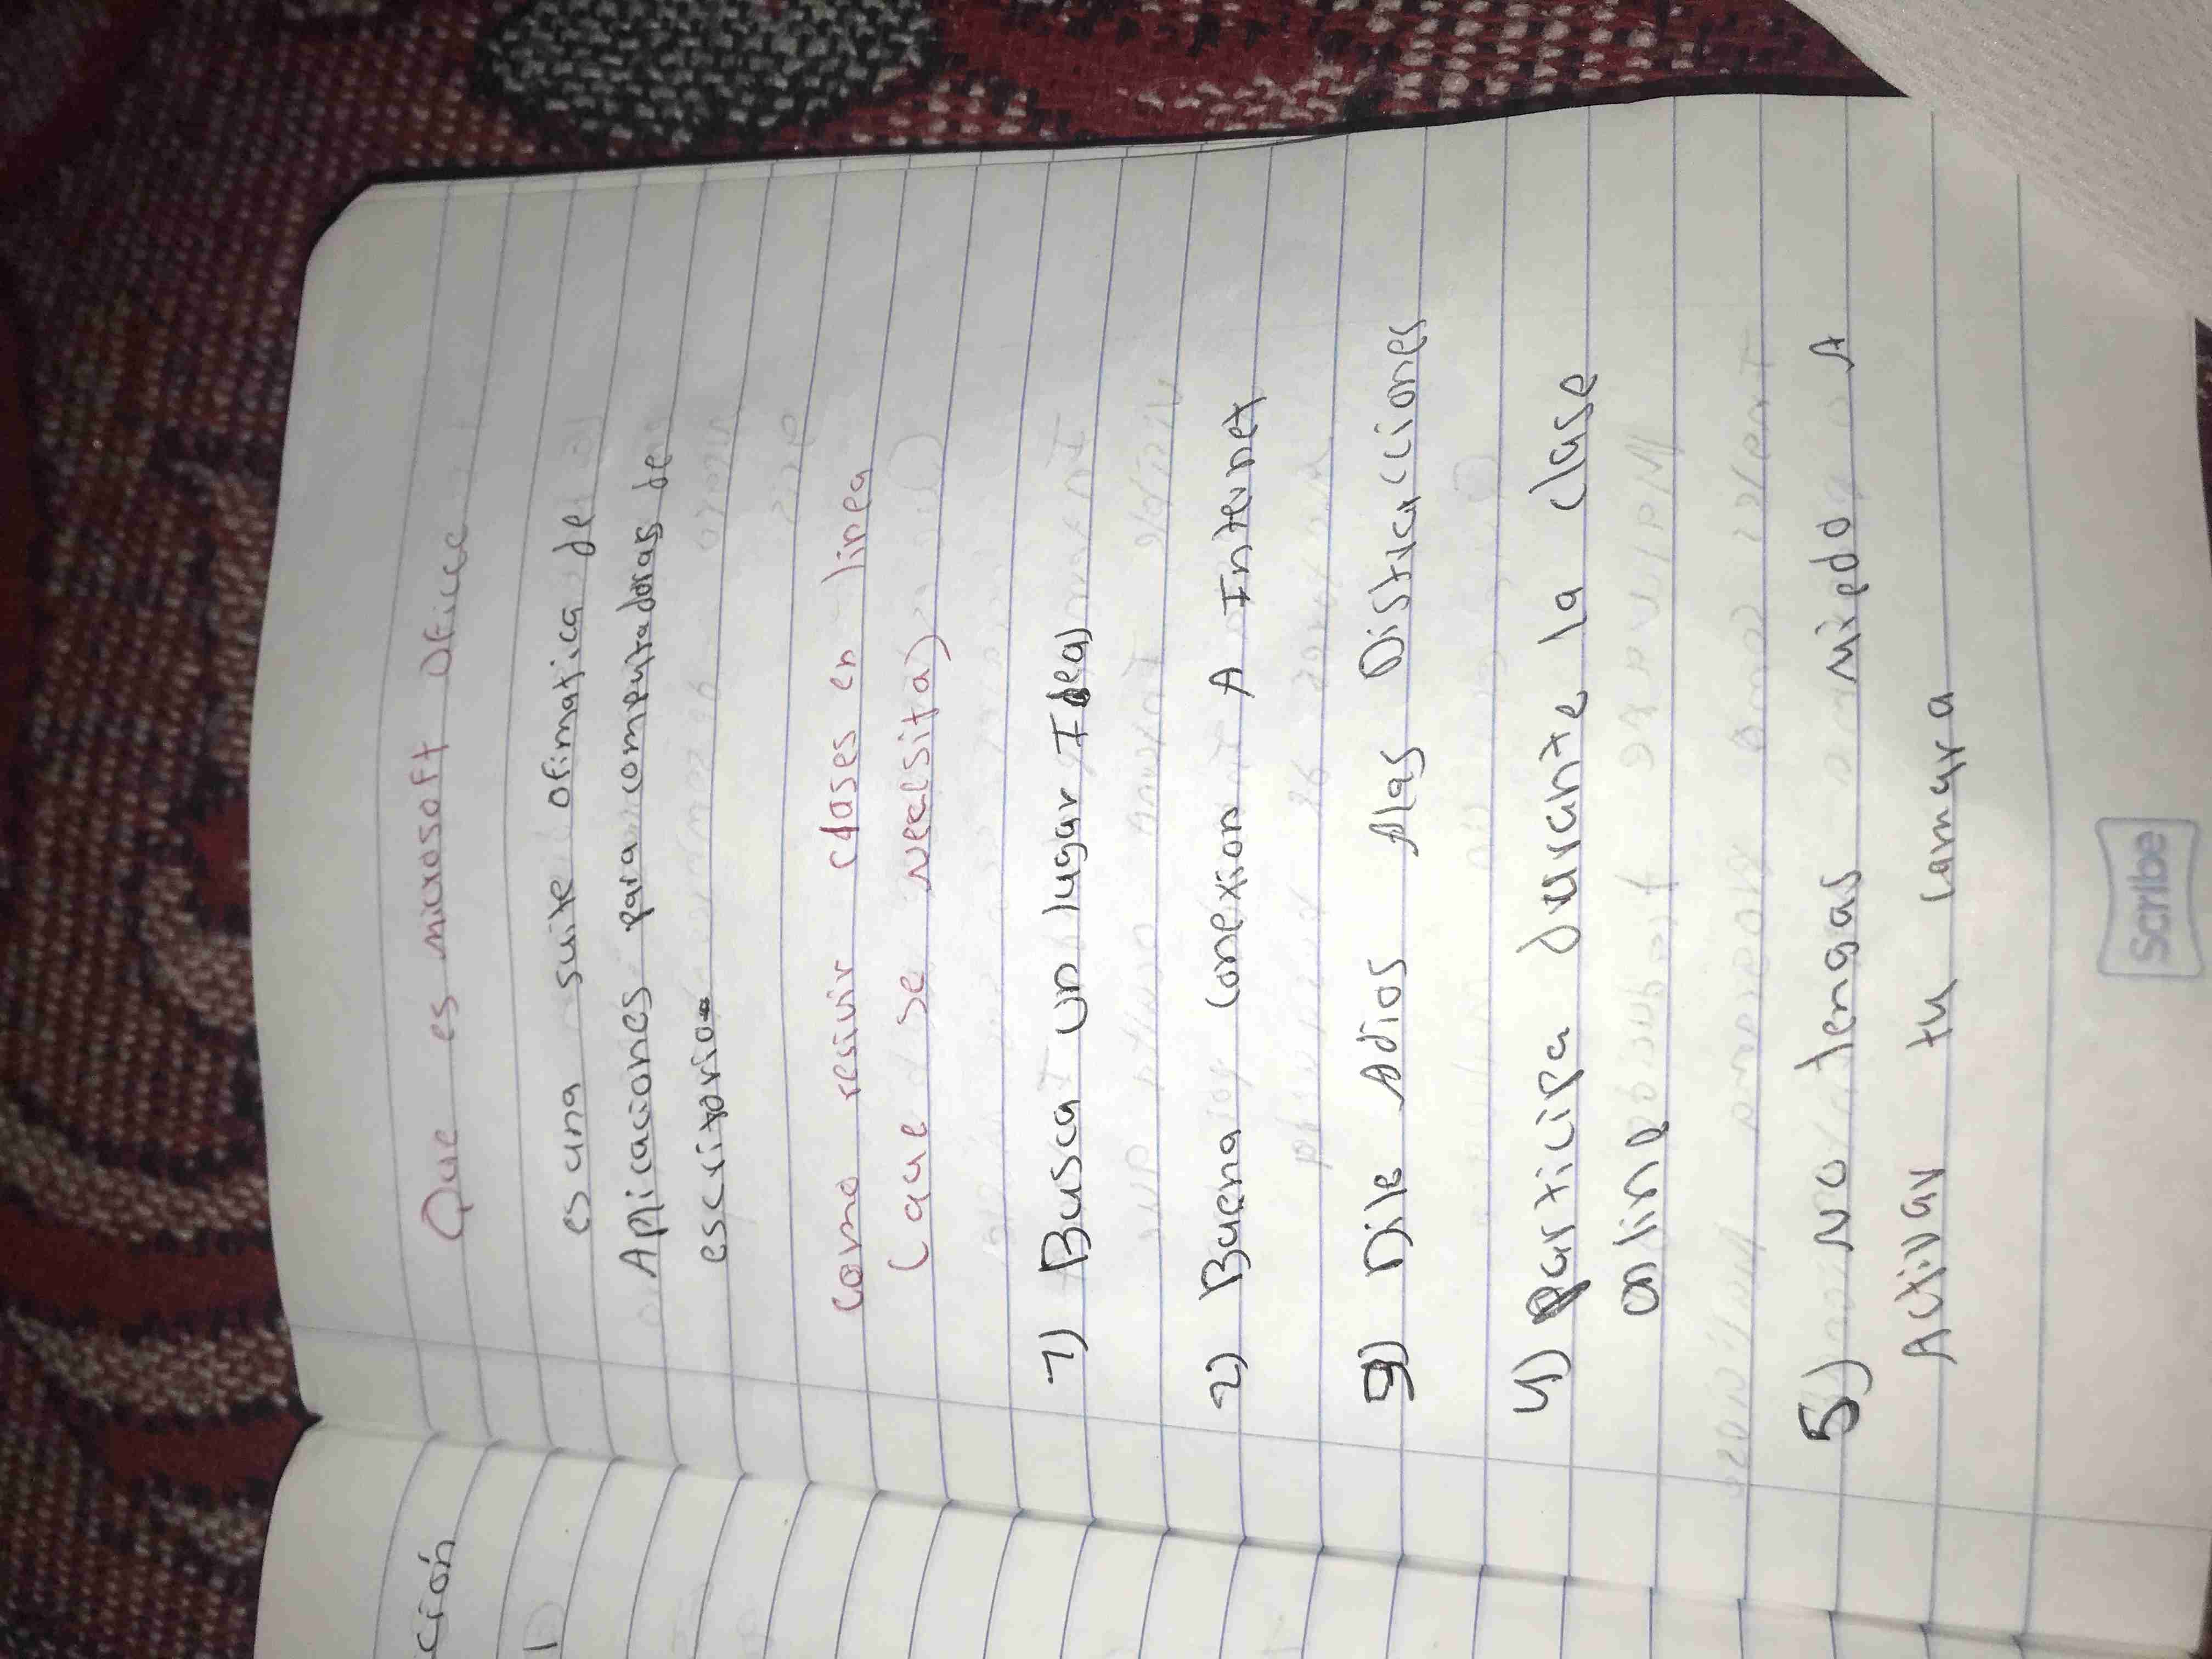 Que es microsoft Ofiice
es una suite ofimatica de
Aplicaciones para computadoras de
escritorio
como resivir clases en linea
(que se necesita)
1) Busca un lugar Ideal
2) Buena conexion A Internet
3) Dile Adios Alas Distracciones
4) Participa durante la clase
online
5) No tengas miedo A
Activar tu camara
Scribe
ción